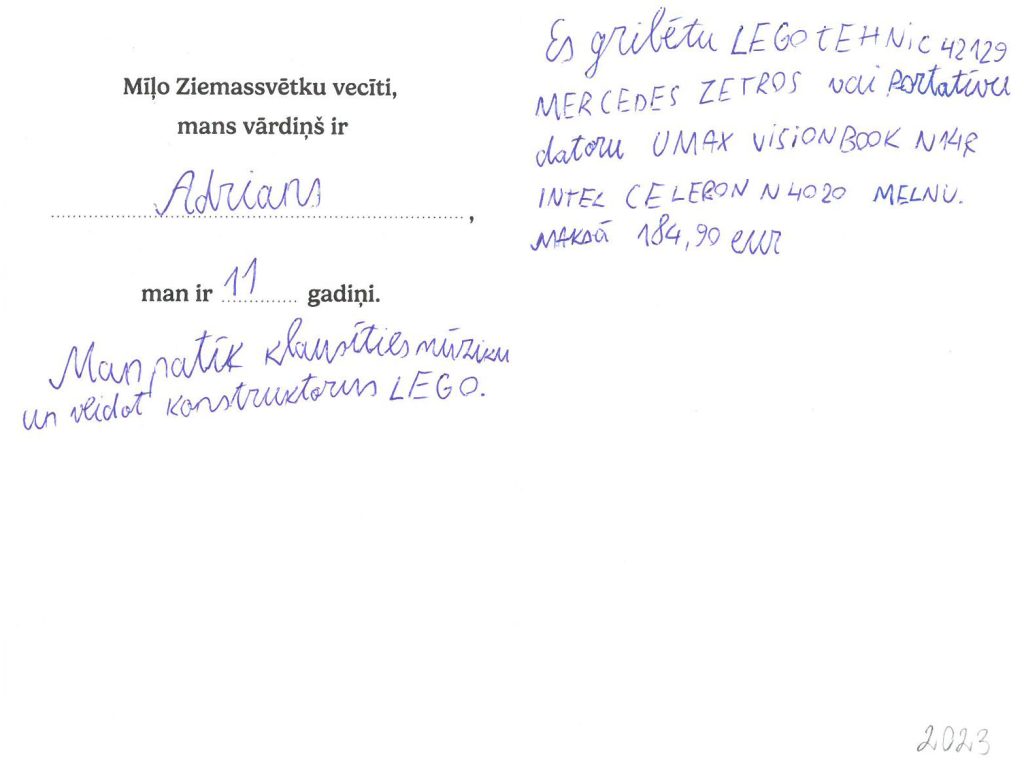 Mīļo Ziemassvētku vecīti,
mans vārdiņš ir
Adrians,
man ir 11 gadiņi.
Man patīk klausīties mūziku
un veidot konstruktorus LEGO.
Es gribētu LEGO tEHNiC 42129
MERCEDES ZETROS vai Portatīvu
datoru UMAX ViSiON BOOK N14R
INTEL CELERON N4020 MELNU.
MAKSĀ 184,90 eur
2023